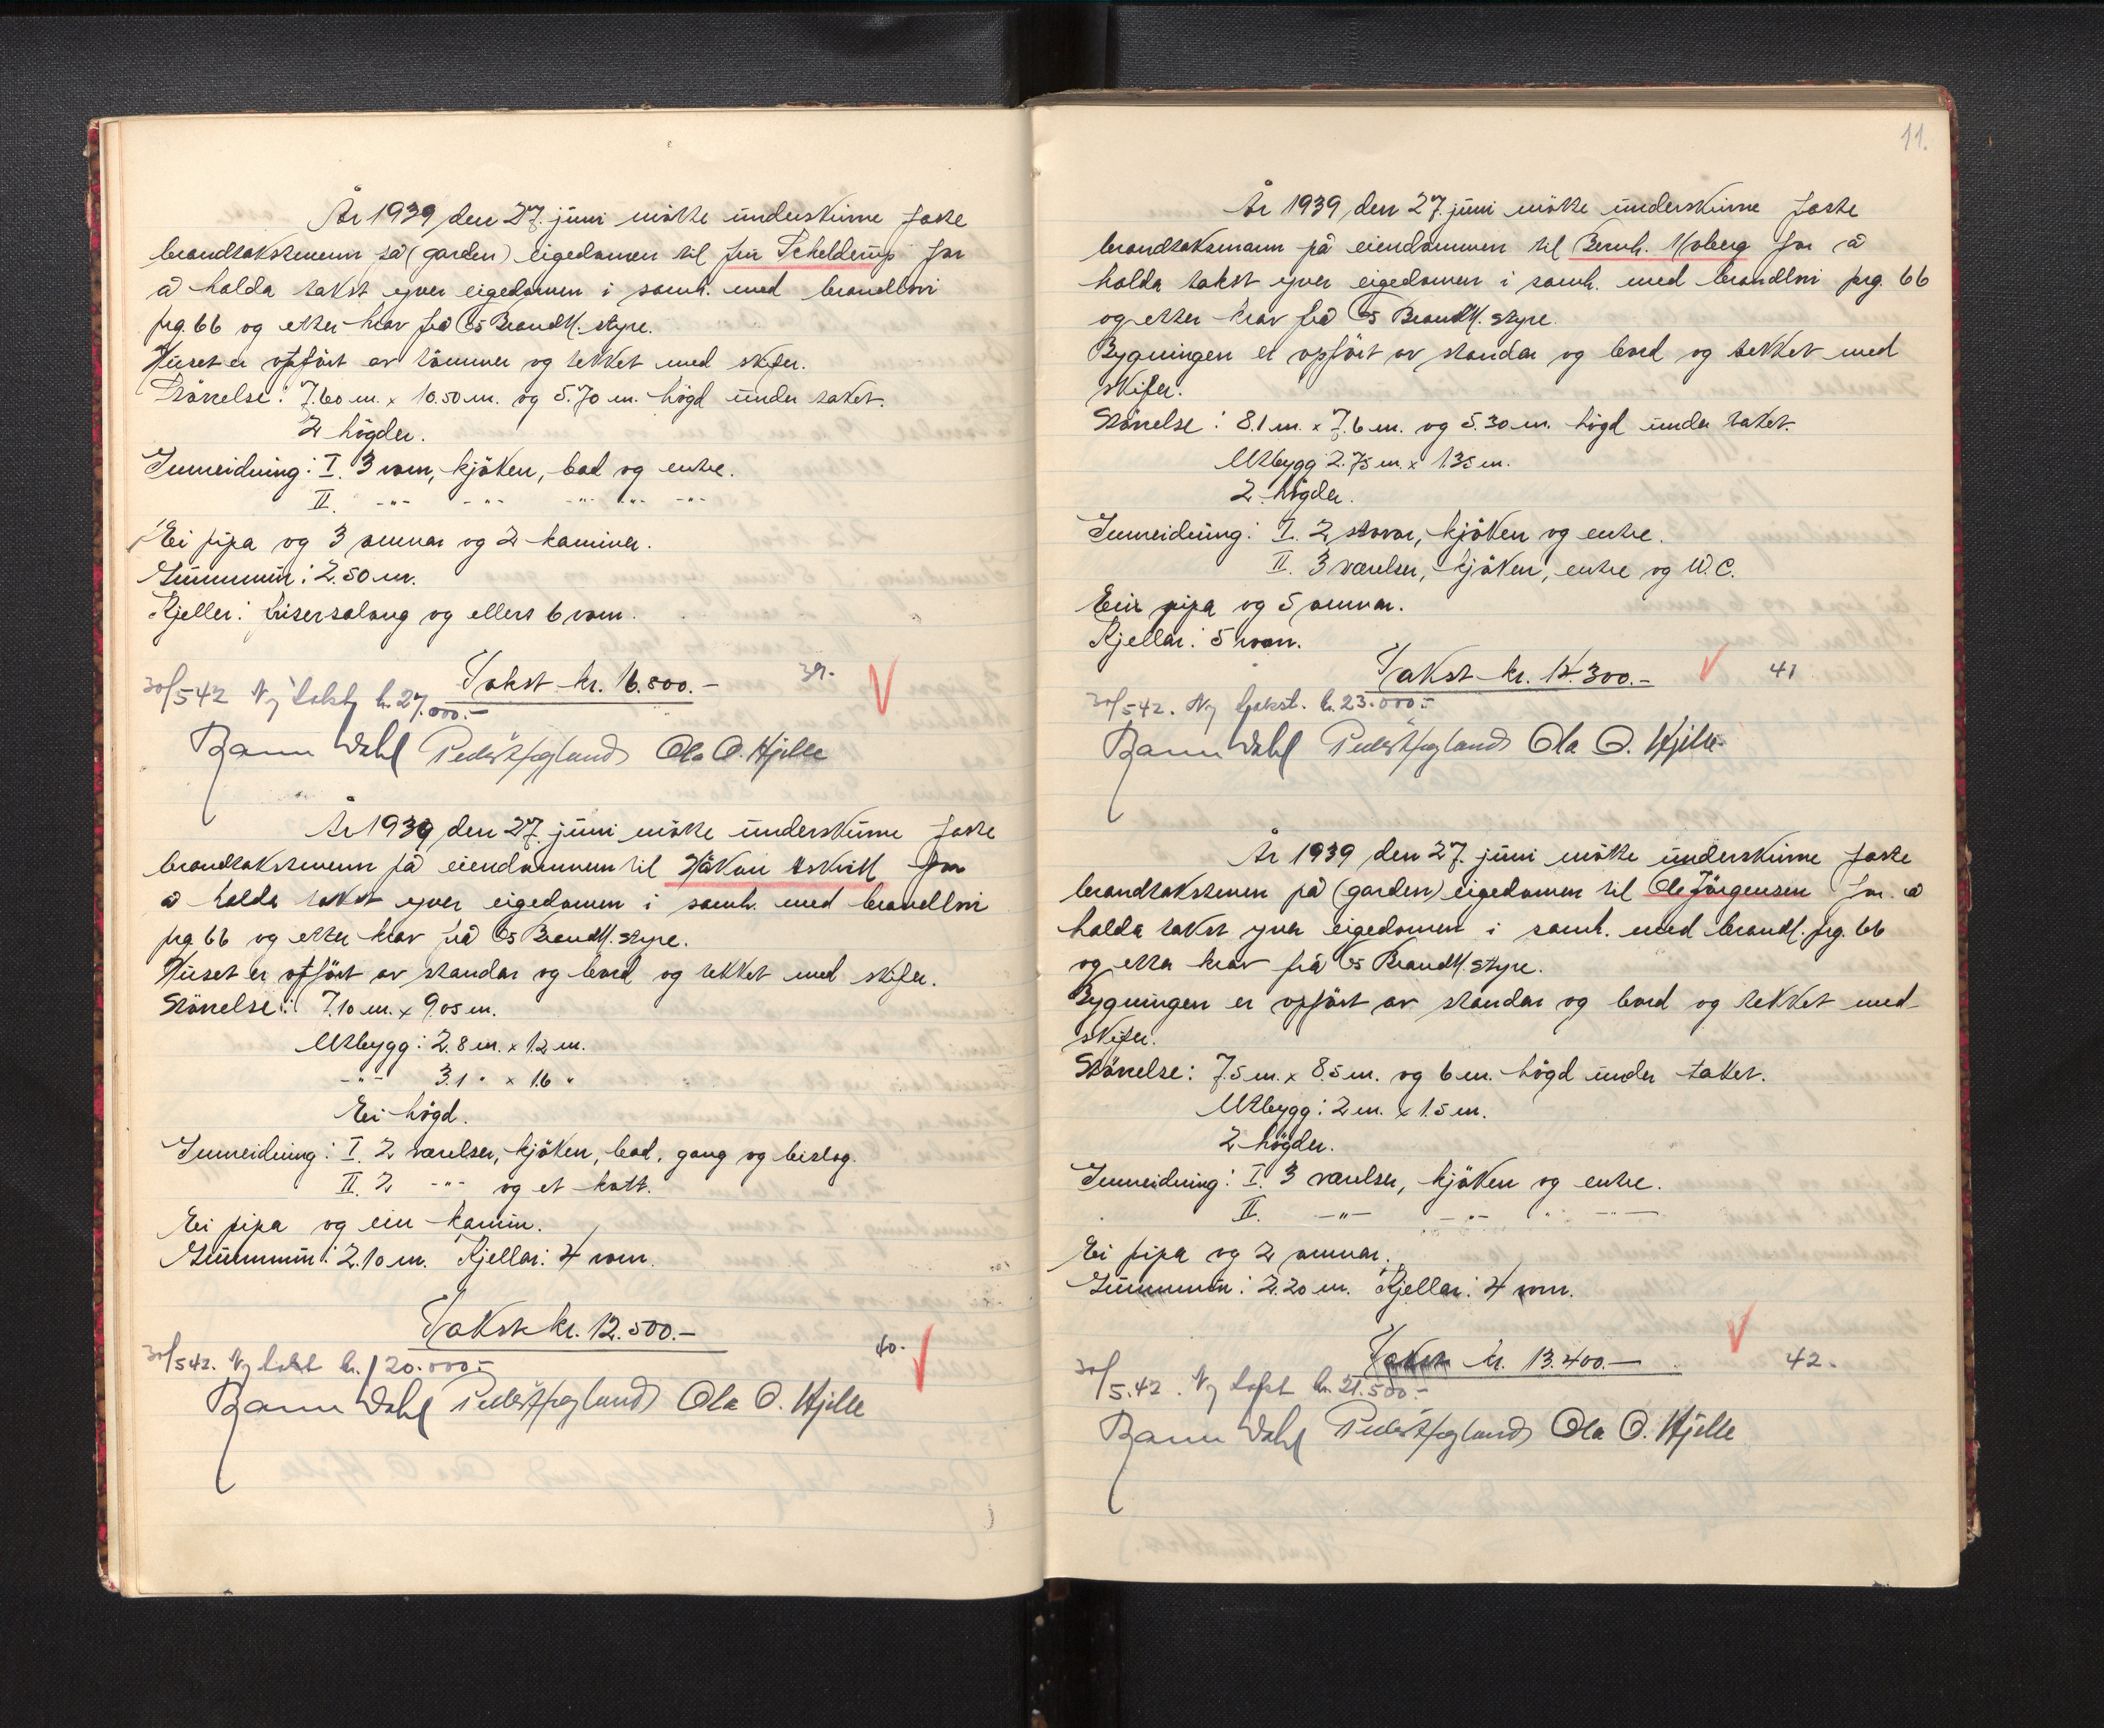 År 1939 den 27. juni møtte underskrivne faste
brandtakstmenn på (garden) eigedomen til fru Schelderup for
å halda takst yver eigedomen i samh. med brandlovi
prg. 66 og etter krav frå Os Brandtl. styre.
Huset er opført av tømmer og tekket med skifer.
Størrelse: 7.60 m. x 10.50 m. og 5.70 m. høgd under taket.
2 høgder.
Innreidning: I. 3 rom, kjøken, bad og entre.
II. -"- -"- -"- -"- -"-
Ei pipa og 3 omnar og 2 kaminer.
Grunnmur: 2.50 m.
Kjeller: frisersalong og ellers 6 rom.
Takst kr. 16.800.- 39.
30/5 42 Ny takst kr. 27.000.-
Dahl Peder Haugland Ola O. Hjelle
År 1939 den 27. juni møtte underskrivne faste
brandtakstmenn på eiendommen til Håkon Askvik for
å halda takst yver eigedomen i samh. med brandlovi
prg 66 og etter krav frå Os Brandtl. styre.
Huset er opført av standar og bord og tekket med skifer.
Størrelse: 7.10 m. x 9.05 m.
Utbygg: 2.8 m. x 1.2 m.
-"- 3.1 " x 1.6 "
Ei høgd.
Innreidning: I. 2 værelser, kjøken, bad, gang og bislag.
II. 2 -"- og et kott.
Ei pipa og ein kamin.
Grunnmur: 2.10 m. Kjellar: 4 rom.
Takst kr. 12.500.- 40.
30/5 42. Ny takst kr. 20.000.-
Dahl Peder Haugland Ola O. Hjelle
11.
År 1939 den 27. juni møtte underskrivne faste
brandtaksmann på eiendommen til Bernh. Moberg for å
halda takst yver eigedomen i samh. med brandlovi prg. 66
og etter krav frå Os Brandtl. styre.
Bygningen er opført av standar og bord og tekket med
skifer.
Størrelse: 8.1 m. x 7.6 m. og 5.30 m. høgd under taket.
Utbygg 2.75 m. x 1.35 m.
2 høgder.
Innreidning: I. 2 stovor, kjøken og entre.
II. 3 værelser, kjøken, entre og W.C.
Ein pipa og 5 omnar.
Kjellar: 5 rom.
Takst kr. 14.300.- 41
30/5 42. Ny takst. kr. 23.000.-
Dahl Peder Haugland Ola O. Hjelle
År 1939 den 27. juni møtte underskrivne faste
brandtakstmen på (garden) eigedomen til Ole Jørgensen for å
halda takst yver eigedomen i samh. med brandl. prg. 66
og etter krav frå Os Brandtl. styre.
Bygningen er opført av standar og bord og tekket med
skifer.
Størrelse: 7.5 m. x 8.5 m. og 6 m. høgd under taket.
Utbygg: 2 m. x 1.5 m.
2 høgder.
Innreidning: I. 3 værelser, kjøken og entre.
II. -"- -"- " -"-
Ei pipa og 2 omnar.
Grunnmur: 2.20 m. Kjellar: 4 rom.
Takst kr. 13.400.- 42.
30/5.42. Ny takst kr. 21.500.-
Dahl Peder Haugland Ola O. Hjelle